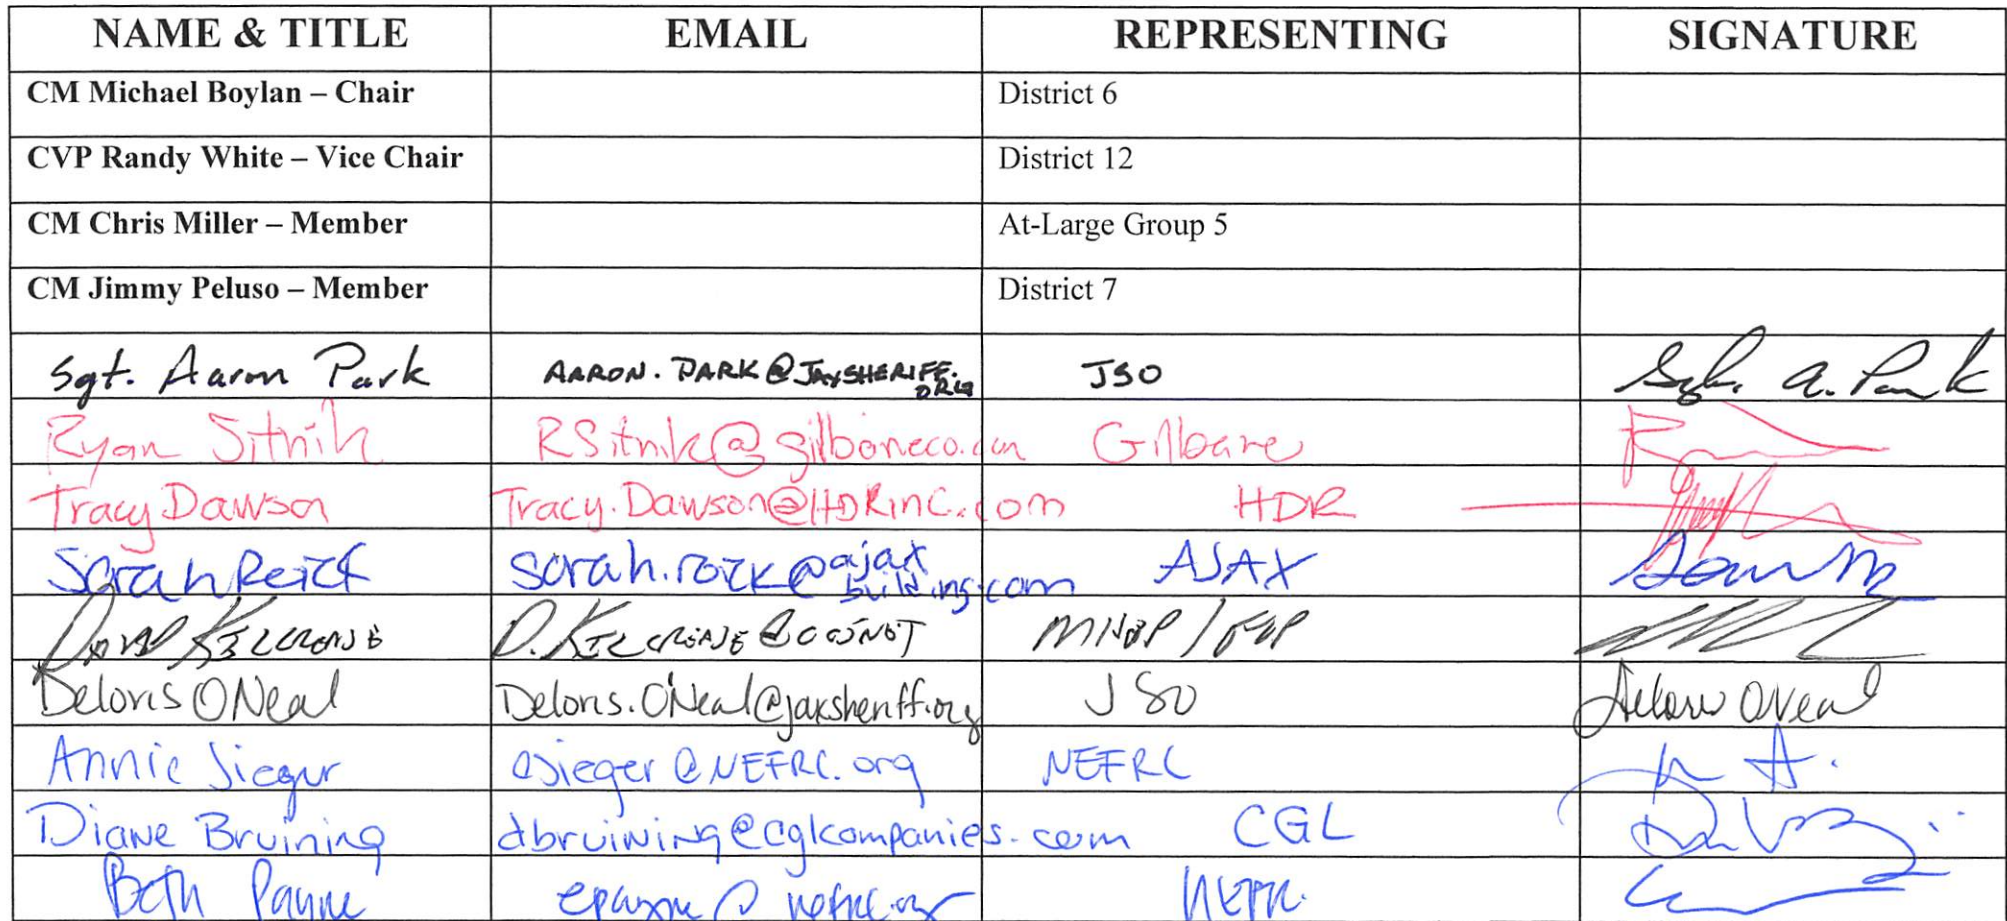 NAME & TITLE EMAIL REPRESENTING SIGNATURE
CM Michael Boylan – Chair District 6
CVP Randy White – Vice Chair District 12
CM Chris Miller – Member At-Large Group 5
CM Jimmy Peluso – Member District 7
Sgt. Aaron Park AARON.PARK@JAXSHERIFF.ORG JSO Sgt. A. Park
Ryan Sitnik RSitnik@gilbaneco.com Gilbane
Tracy Dawson Tracy.Dawson@HDRinc.com HDR
Sarah Reick sarah.reick@ajaxbuilding.com AJAX
Deloris ONeal Deloris.ONeal@jaxsheriff.org JSO Deloris ONeal
Annie Sieger asieger@NEFRC.org NEFRC
Diane Bruining dbruining@cglcompanies.com CGL
Beth Payne epayne@nefrc.org NEFRC